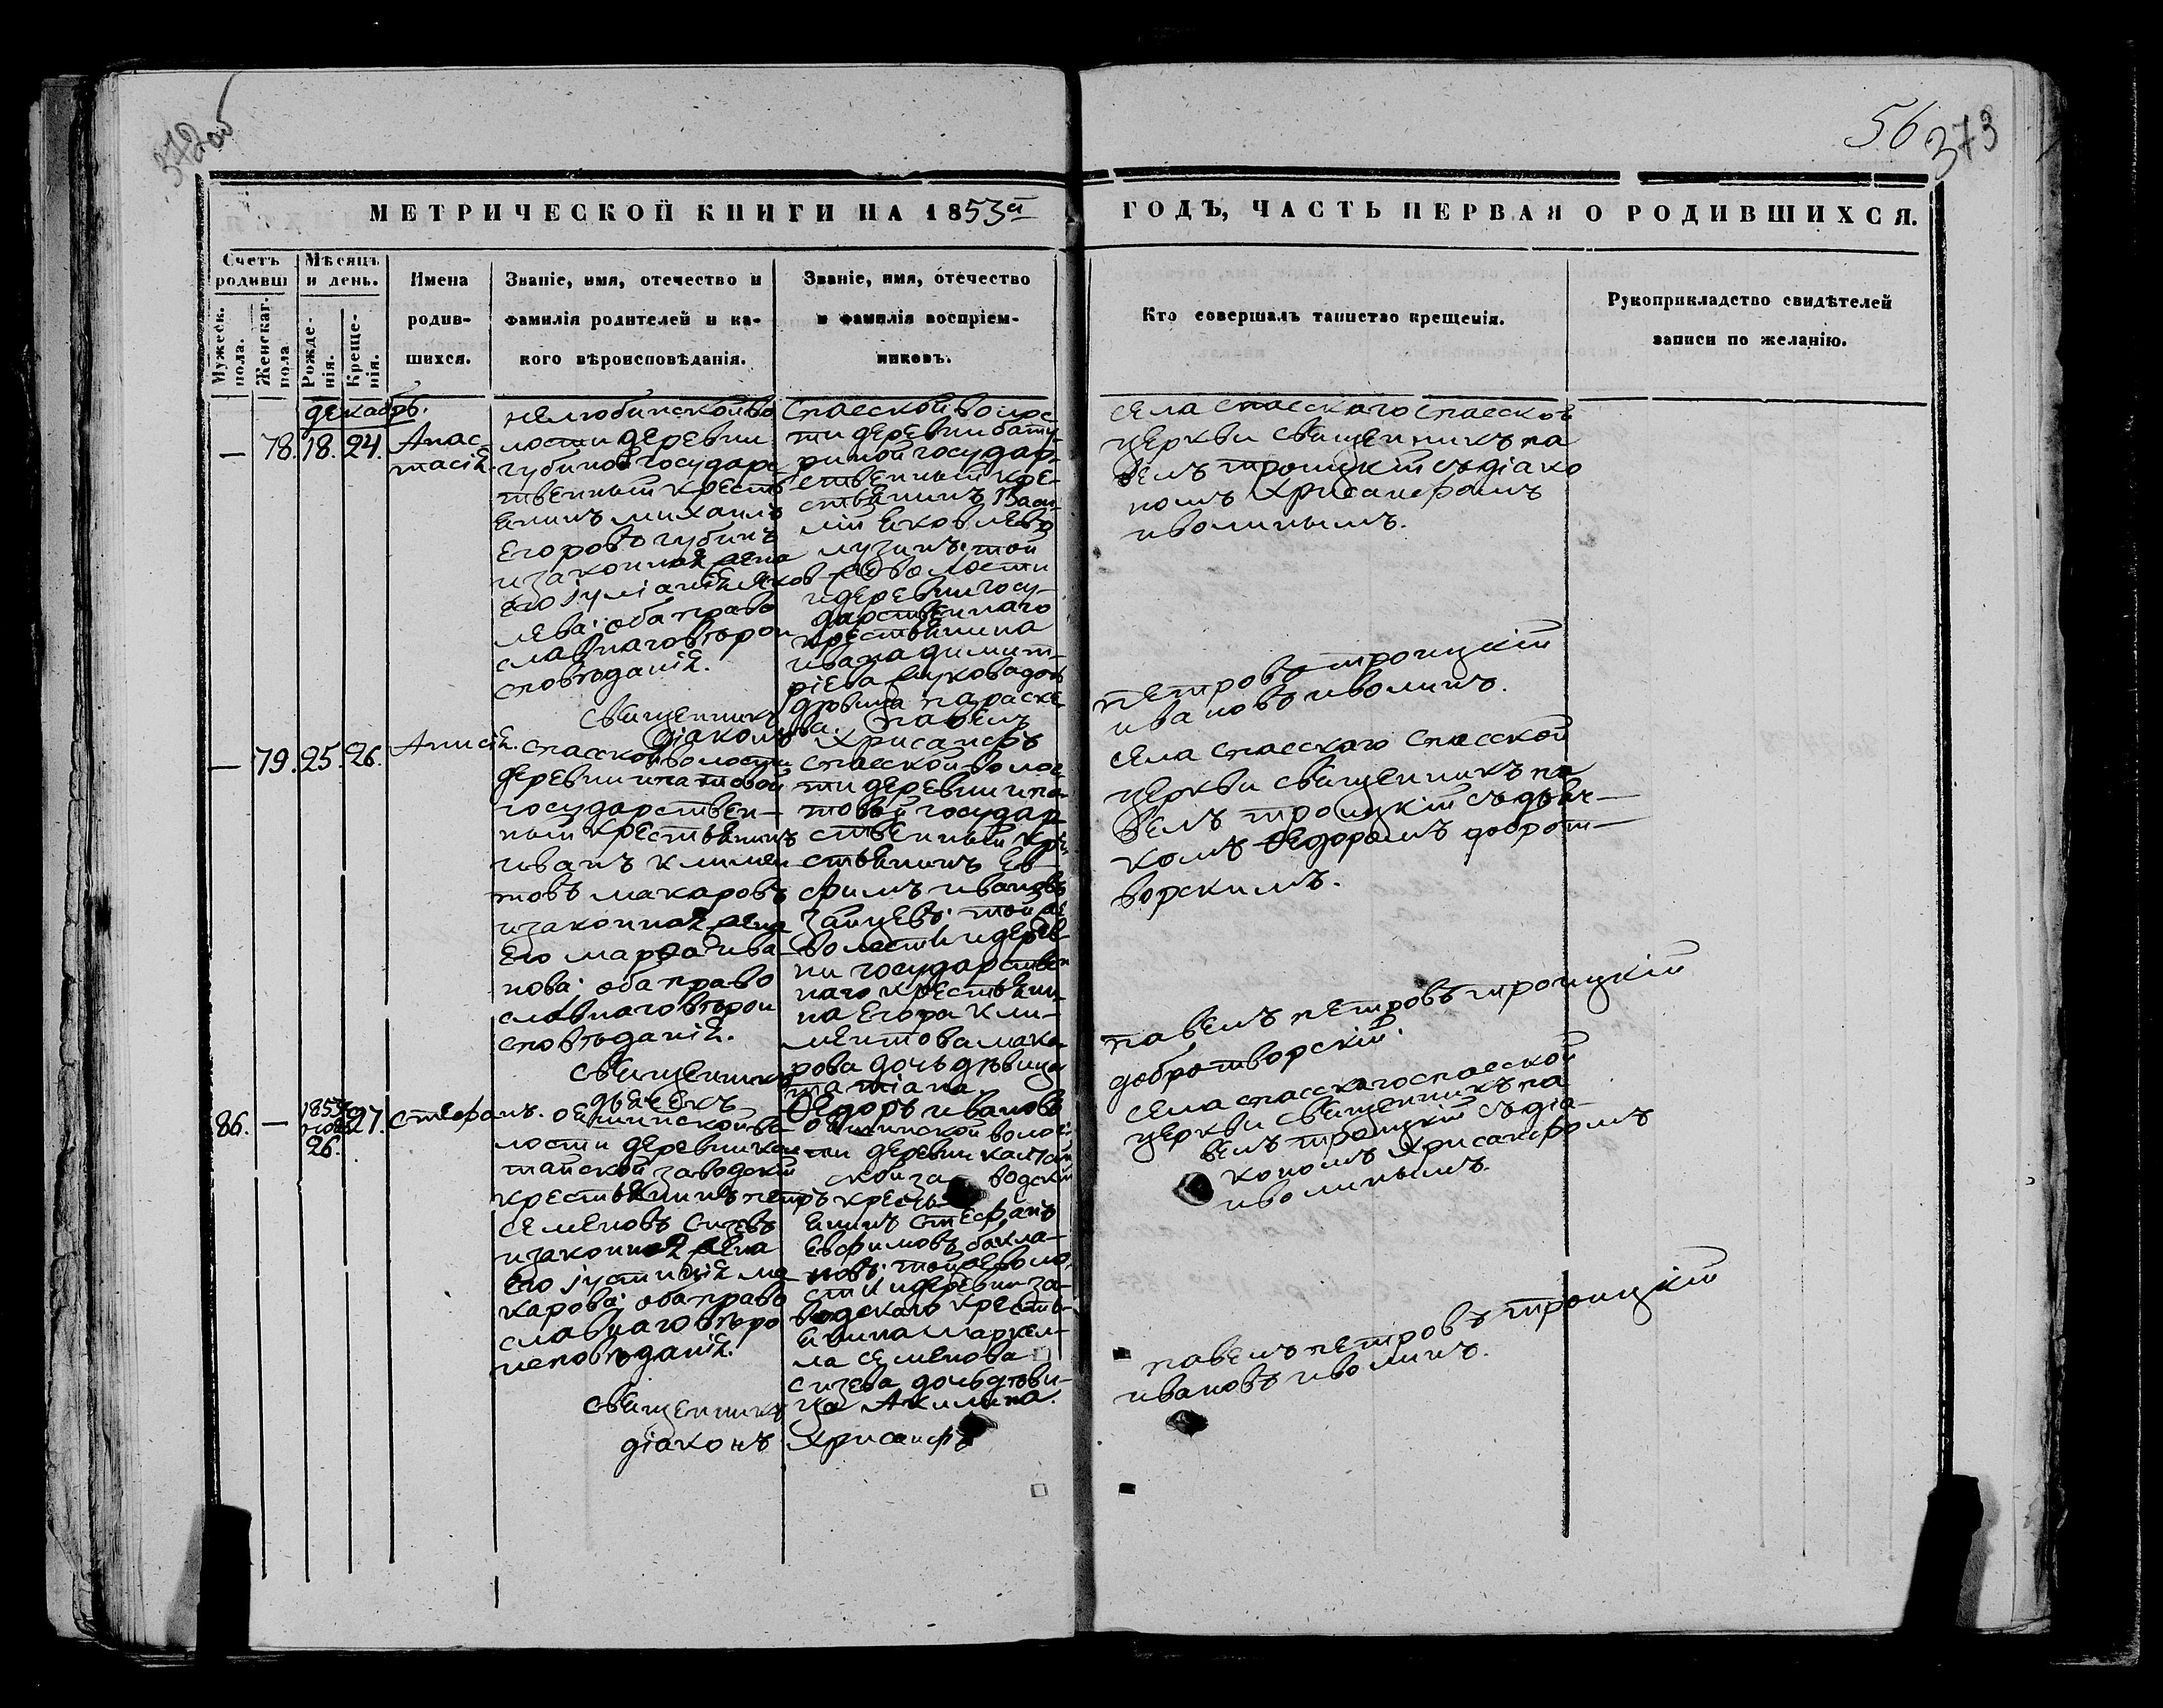 372об
56
373
МЕТРИЧЕСКОЙ КНИГИ НА 1853й
ГОДЪ, ЧАСТЬ ПЕРВАЯ О РОДИВШИХСЯ.
Счетъ родивш
Мужеск. пола.
Женскаг. пола
Мѣсяцъ и день.
Рожде-нія.
Креще-нія.
Имена
родив-
шихся.
Званіе, имя, отечество и
фамилія родителей и ка-
кого вѣроисповѣданія.
Званіе, имя, отечество
и фамилія воспріем-
никовъ.
Кто совершалъ таинство крещенія.
Рукоприкладство свидѣтелей
записи по желанію.
декабрь.
— 78. 18. 24.
Анас-
тасія.
нелюбинской во
лости деревни
губиной государс
твенный кресть
янинъ михаилъ
Егоровъ губинъ
и законная жена
его іуліанія яков
лева: оба право
славнаго вѣрои
сповѣданія.
Спасской волос
ти деревни бату
риной государ-
ственный кре-
стьянинъ Васи-
лій яковлевъ
лузинъ: той
же волости
и деревни госу-
дарственнаго
крестьянина
ивана димит-
ріева дочь
дѣвица параске
ва.
села спасскаго спасской
церкви священникъ па
велъ троицкій съ діако
номъ хрисанфомъ
иволинымъ.
священникъ павелъ петровъ троицкій
діаконъ Хрисанфъ ивановъ иволинъ.
— 79. 25. 26.
Анисія.
спасской волости
деревни ипатовой
государствен-
ный крестьянинъ
иванъ климен
товъ макаровъ
и законная жена
его марѳа ива-
нова: оба право
славнаго вѣрои
сповѣданія.
спасской волос
ти деревни ипа-
товой государ-
ственный кре-
стьянинъ Ев
фимъ ивановъ
Зайцевъ: той же
волости и дерев
ни государствен
наго крестьяни-
на Егора Кли-
ментова мака-
рова дочь дѣвица
татіана.
села спасскаго спасской
церкви священникъ па
велъ троицкій съ дьяч-
комъ Ѳедоромъ доброт-
ворскимъ.
священникъ павелъ петровъ троицкій
дьячекъ Ѳедоръ ивановъ добротворскій.
86. — 1853
26. 27.
стефанъ.
ояшинской во-
лости деревни кан
тайской заводскій
крестьянинъ петръ
семеновъ сизевъ
и законная жена
его іустинія ма-
карова: оба право
славнаго вѣро
исповѣданія.
ояшинской волос
ти деревни кантай
ской заводскій
кресть-
янинъ стефанъ
Евфимовъ бакла-
новъ: той же воло
сти и деревни за-
водскаго кресть-
янина маркел-
ла семенова
сизева дочь дѣви-
ца Акилина.
села спасскаго спасской
церкви священникъ па
велъ троицкій съ діа-
кономъ Хрисанфомъ
иволинымъ.
священникъ павелъ петровъ троицкій
діаконъ Хрисанфъ ивановъ иволинъ.